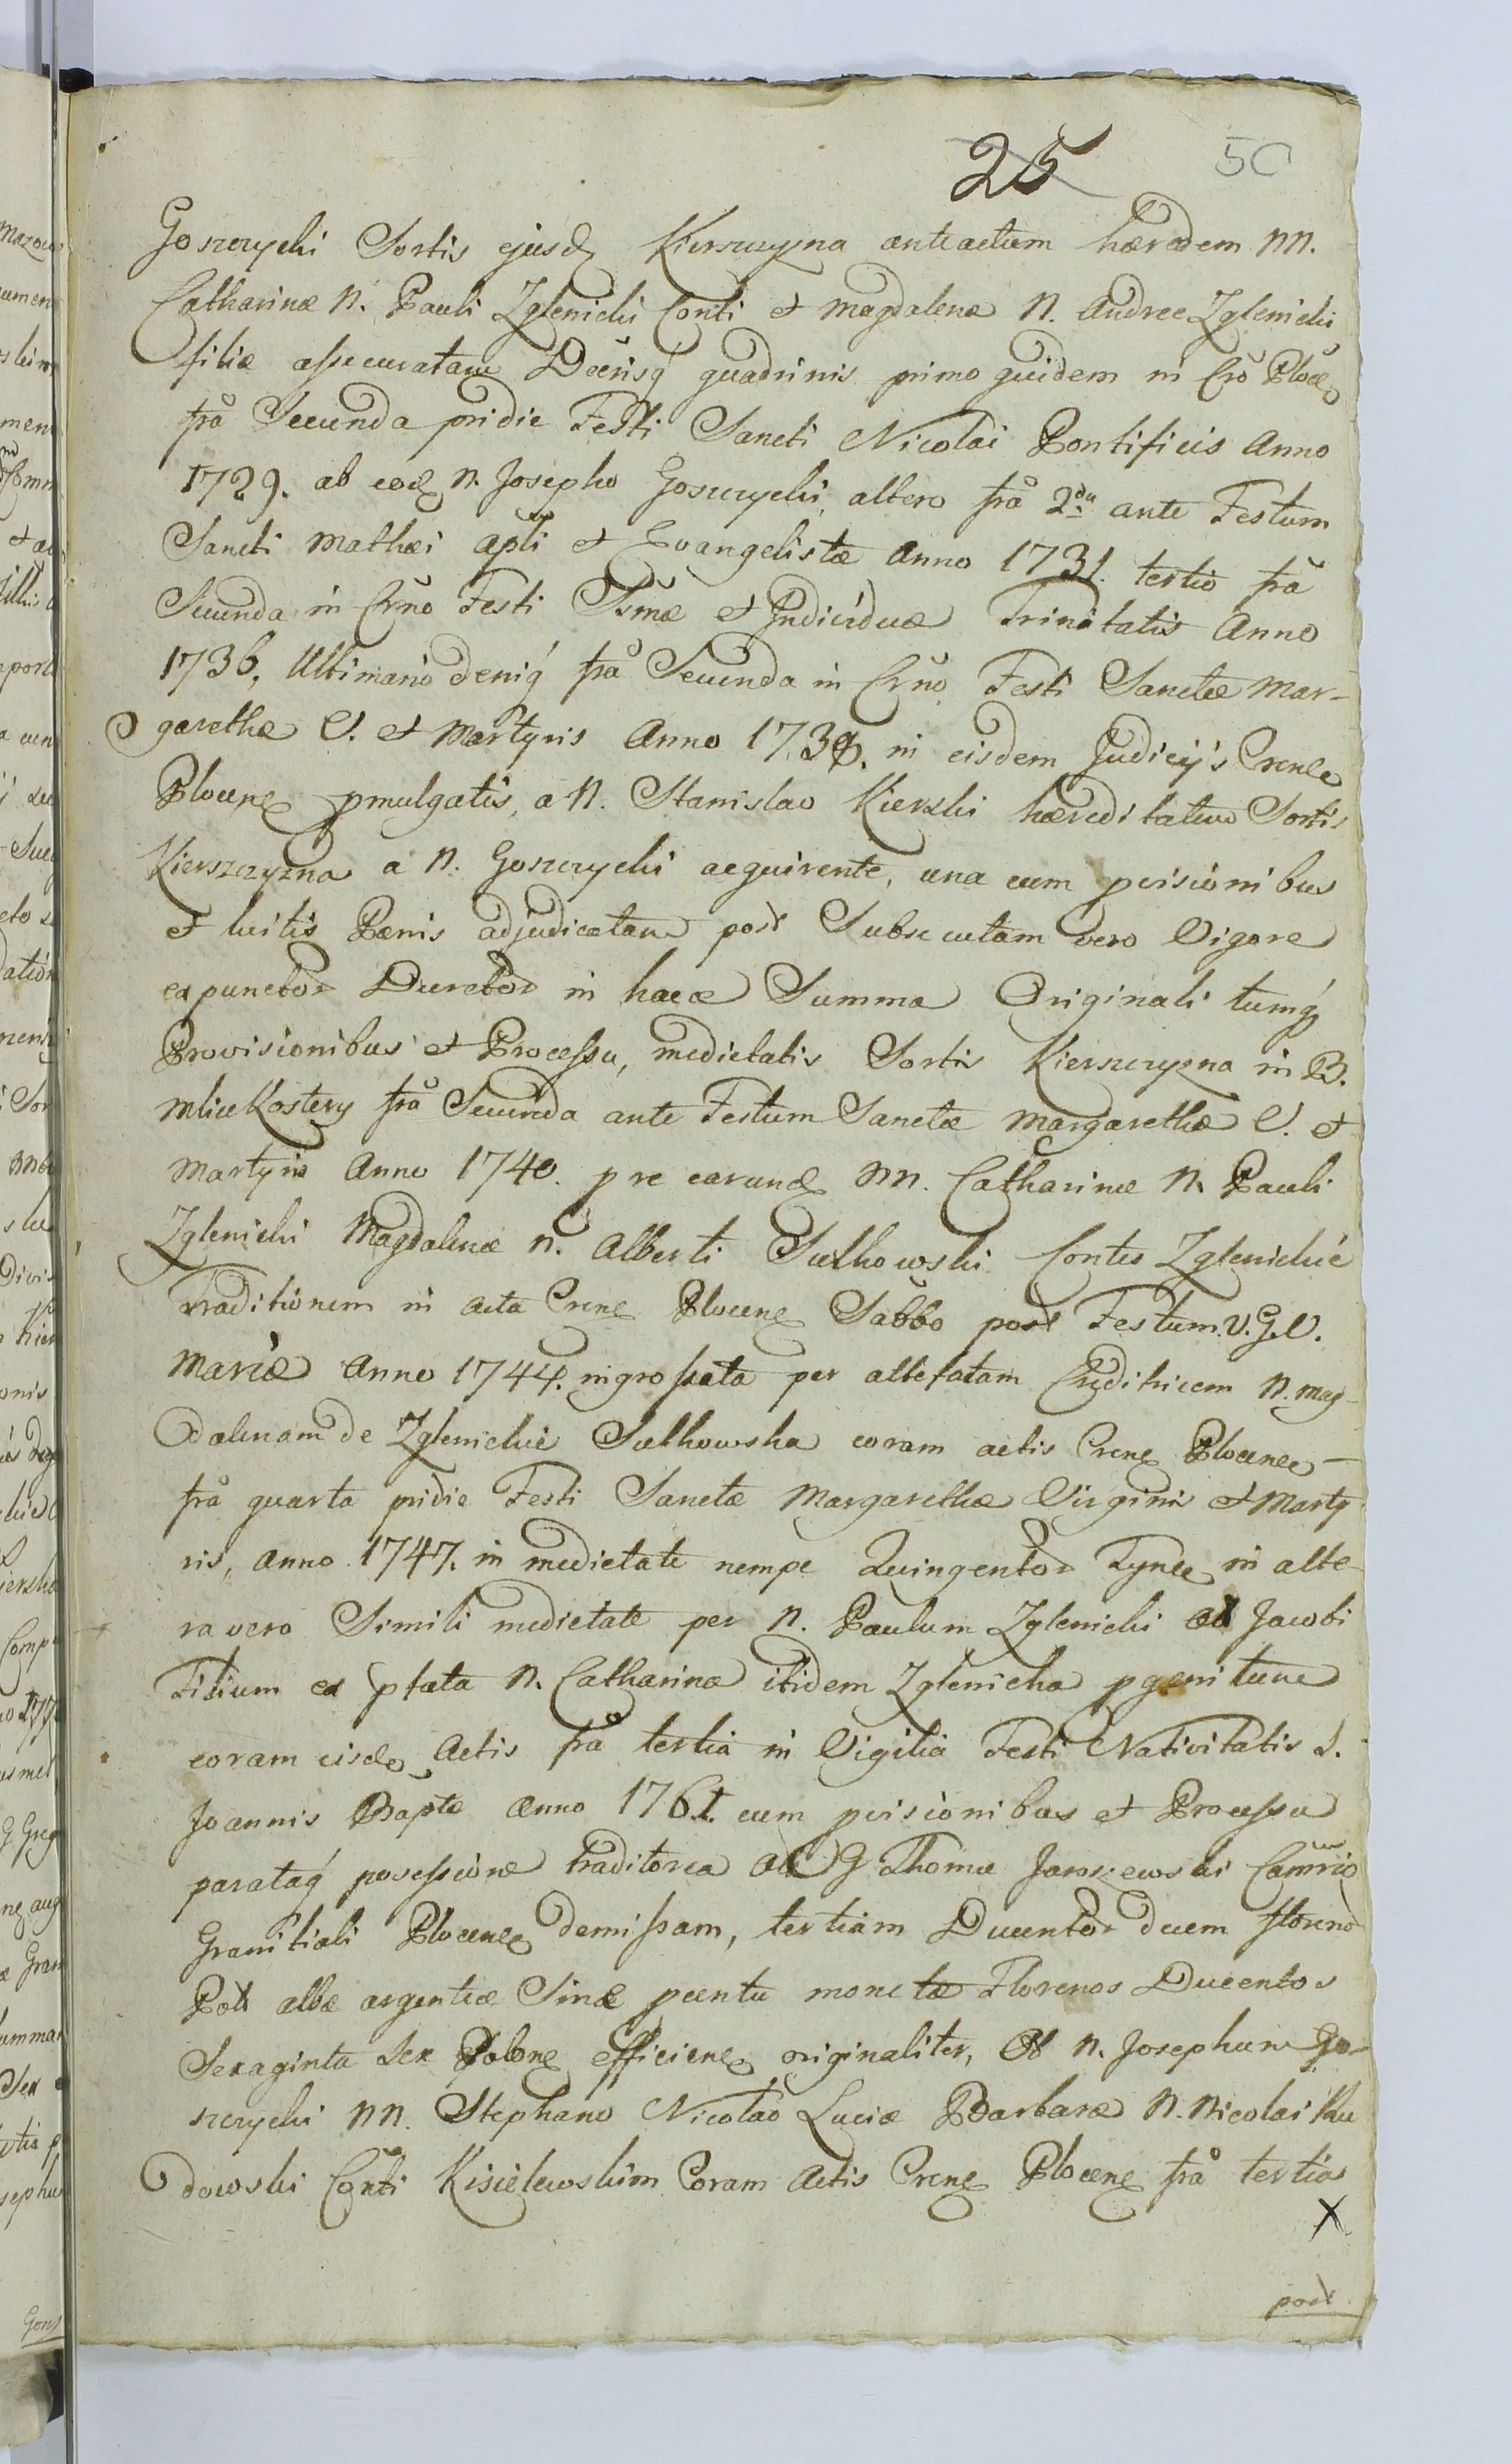 25 50
Goszczycki Sortis ejusd Kierszczyzna anteactum hæredem NN.
Catharinæ N. Pauli Zglenicki Conti et Magdalenæ N. Andreæ Zglenicki
filiæ assecuratam Decrisq́ quadrinis primo quidem in Cro Ploc
frã Secunda pridie Festi Sancti Nicolai Pontificis Anno
1729. ab eod N. Josepho Goszczycki, altero frã 2da ante Festum
Sancti Mathæi Apli et Evangelistæ Anno 1731. tertio frã
Secunda in Crño Festi SSmæ et Individuæ Trinitatis Anno
1736, Ultimario deniq́ frã Secunda in Crño Festi Sanctæ Mar-
garethæ V. et Martyris Anno 1738. in eisdem Judicijs Crenle
Plocen pmulgatis, a N. Stanislao Kierski hæreditatem Sortis
Kierszczyzna a N. Goszczycki acquirente, una cum pvisionibus
et luitis Pænis adjudicatam post Subsecutam vero Vigore
expunctor Decretor in hacce Summa Originali tumq́
Provisionibus et Processu, medietatis Sortis Kierszczyzna in B.
Mlice Kostery frã Secunda ante Festum Sanctæ Margarethæ V. et
Martyris Anno 1740. p re earund NN. Catharinæ N. Pauli
Zglenicki Magdalenæ N. Alberti Sulkowski Contes Zglenickie
Traditionem in Acta Cren Plocen Sabbo post Festum. V. G. V.
Mariæ Anno 1744. ingrossata per attefatam Creditricem N. Mag-
dalenam de Zglenickie Sulkowska coram actis Cren Plocen
frã quarta pridie Festi Sanctæ Margarethæ Virginis et Marty
ris, Anno 1747. in medietate nempe Quingentor Tynf, in alte-
ra vero Simili medietate per N. Paulum Zglenicki Jacobi
Filium ex pfata N. Catharina itidem Zglenicka pgenitum
coram eisd Actis frã tertia in Vigilia Festi Nativitatis S.
Joannis Baptæ Anno 1761. cum pvisionibus et Processu
parataq́ possessione traditorea G Thomæ Janszewski Camrio
Granitiali Plocen demissam, tertiam Ducentor decem floreno
Poll albæ argenteæ Sinæ pcentu monetæ Florenos Ducentos
Sexaginta Sex Polon efficien originaliter, Ob N. Josephum Go-
szczycki NN. Stephano Nicolao Luciæ Barbaræ N. Nicolai Ku
dowski Conti Kisielewskim Coram Actis Cren Plocen frã tertia
X
post